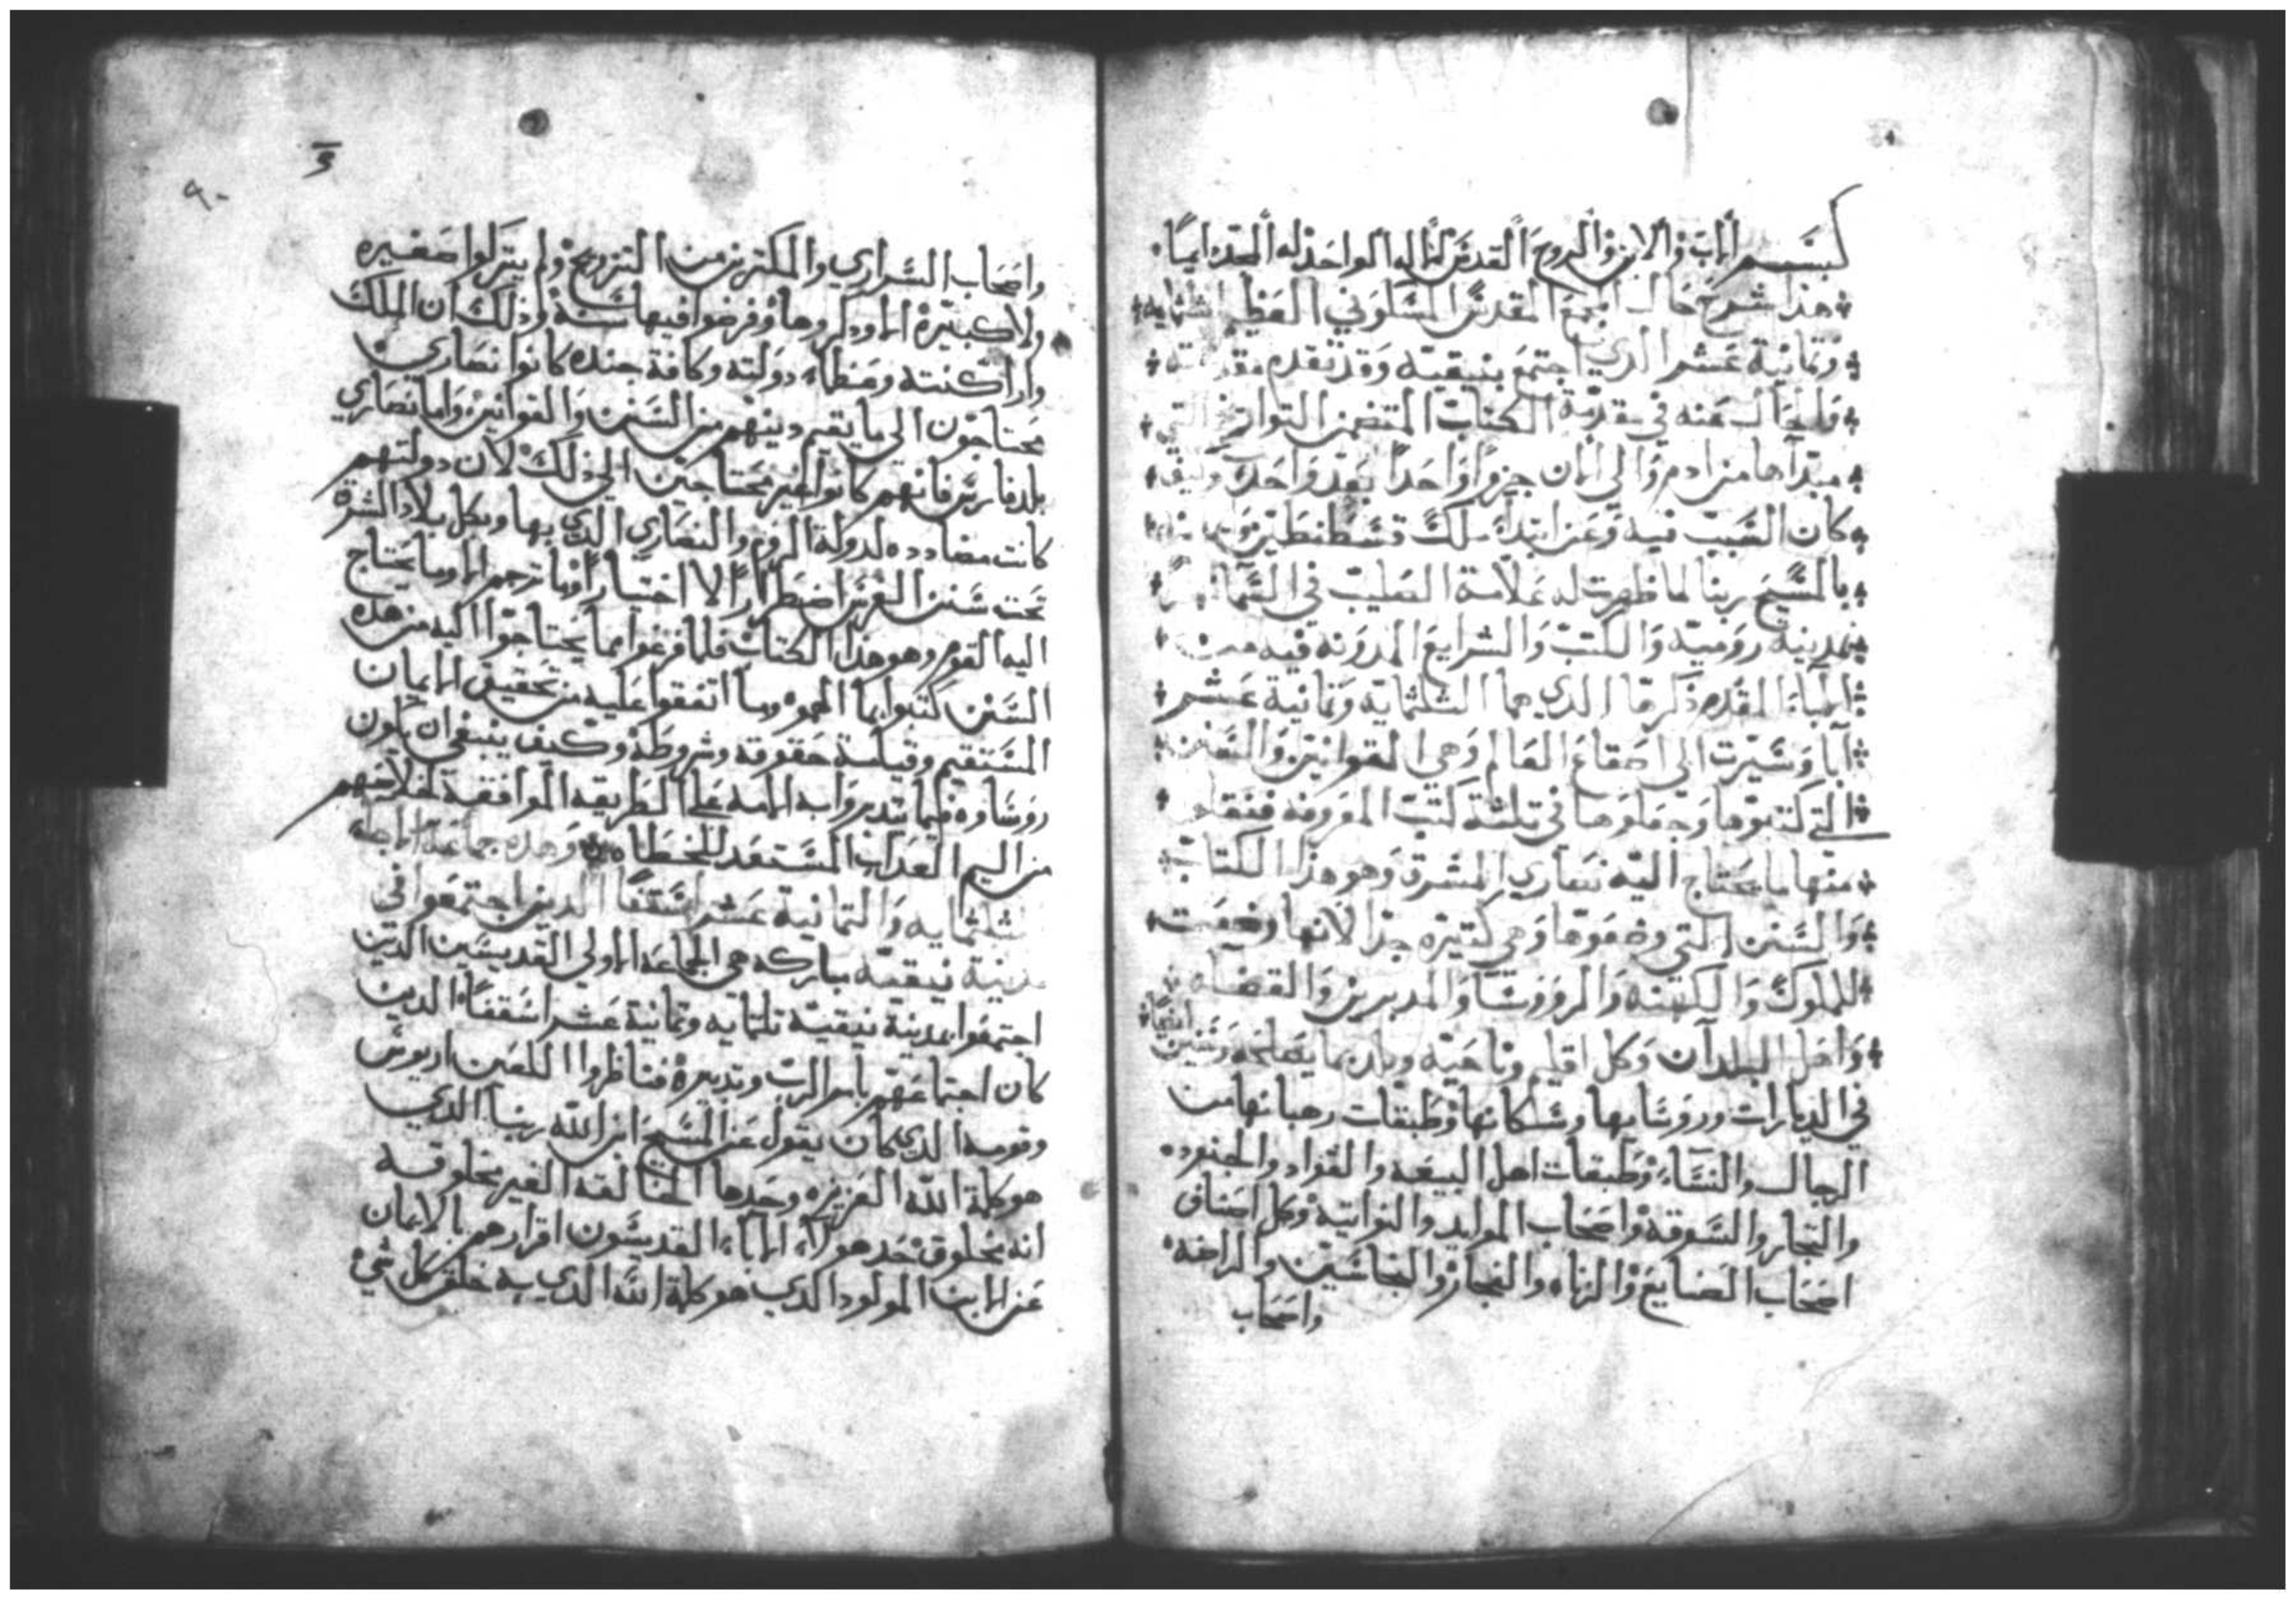 بسم الاب والابن والروح القدس الاله الواحد له المجد دايمًا
هذا شرح حال المجمع المقدس المسكوني العظيم الثلثمايه
وثمانية عشر الدي اجتمع بنيقيه وقد تقدم
قليحال عنه في مقدمة الكتاب المتضمن التواريخ التي
مبتداها من ادم والي الان جيزوا واحدًا بعد واحد وكيف
كان السبب فيه وعن ابتدا ملك قسطنطين
بالمسيح ربنا لما ظهرت له علامة الصليب في السما
بمدينة رومية والكتب والشرايع المدونه فيه من
الاباء المقدم ذكرها الدي هما الثلثمايه وثمانية عشر
ابا وسيرت الى اصقاع العالم وهي القوانين والسنن
التي كتبوها وجعلوها في تلثة كتب المعروفه فنقل
منها ما يحتاج اليه نصاري المشرق وهو هذا الكتاب
والسنن التي وضعوها وهي كتيره جدًا لانها وضعت
للملوك والكهنه والروؤسا والمدبرين والقضاه
واهل البلدآن وكل اقليم وناحيه وبلد بما يصلحه وسنن ايضًا
في الديارات وروسايها وسكانها وطبقات رهبانها من
الرجال والنساء وطبقات اهل البيعه والقواد والجنود
والتجار والسوقه واصحاب الموايد والنواتيه وكل اصناف
اصحاب الصنايع والزناه والفجار والنخاسين والراضه
واصحاب
واصحاب السراري والمكترين من التزويج ولم يتركوا صغيره
ولا كبيرة الا ودكروها وفرضوا فيها سنة وذلك ان الملك
واراكنته وعظماء دولته وكافة جنده كانوا نصاري
محتاجون الى ما يقيم دينهم من السنن والقوانين واما نصاري
بلد فارس فانهم كانوا غير محتاجين الى ذلك لان دولتهم
كانت مضادده لدولة الروم والنصاري الدي بها وبكل بلاد الشرق
تحت سنن الفرس اضطرارًا لا اختيارًا وما ترجم الا وما يحتاج
اليه القوم وهو هذا الكتاب فلما فرغوا مما يحتاجوا اليه من هذه
السنن كتبوا بما الهموه وما اتفقوا عليه من تحقيق الايمان
المستقيم وقياسة حقوقه وشروطه وكيف ينبغي ان يكون
روساوه فيما يتدبروا به الامه على الطريقه الموافقه لخلاصهم
من اليم العداب المستعد للخطاه وهذه جماعة
الثلثمايه والتمانية عشر اسقفًا الدين اجتمعوا في
مدينة نيقيه مباركه هي الجماعه الاولي القديسين الدين
اجتمعوا بمدينة نيقية تلثمايه وثمانية عشر اسقفًا الدين
كان اجتماعهم بامر الرب وتدبيره فناظروا اللعين اريوس
وقومه الدي كان يقول عن المسيح ابن الله ربنا الدي
هو كلمة الله العزيزه وحدها الخالقه الغير مخلوقه
انه مخلوق حد هولاء الاباء القديسون اقرارهم بالايمان
عن الابن المولود الدي هو كلمة الله الدي به خلق كل شيء